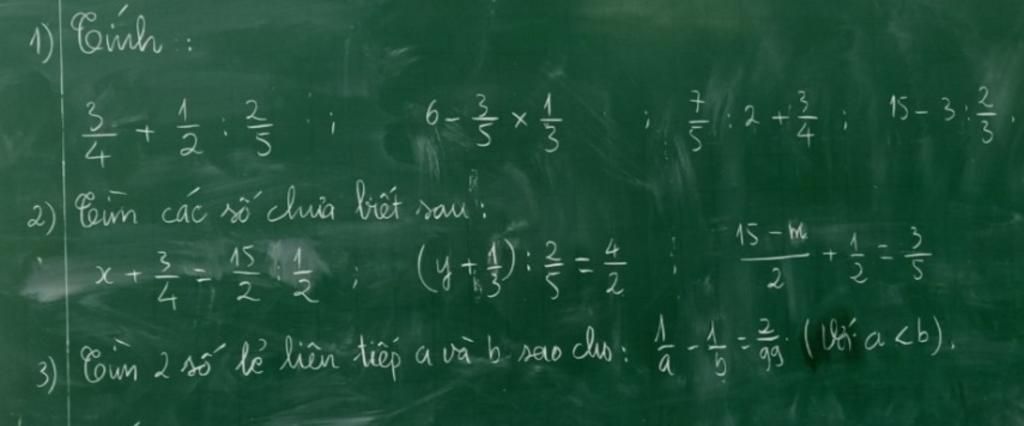 1) Tính :
3/4 + 1/2 : 2/5 ; 6 - 3/5 × 1/3 ; 7/5 : 2 + 3/4 ; 15 - 3 : 2/3.
2) Tìm các số chưa biết sau :
x + 3/4 = 15/2 : 1/2 ; (y + 1/3) : 2/5 = 4/2 ; (15 - m)/2 + 1/2 = 3/5
3) Tìm 2 số lẻ liên tiếp a và b sao cho : 1/a - 1/b = 2/99. (Với a < b).